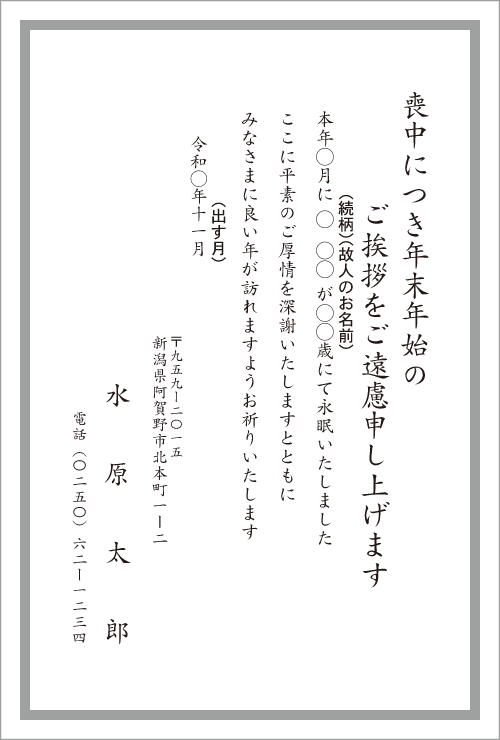 喪中につき年末年始の
ご挨拶をご遠慮申し上げます
(続柄)(故人のお名前)
本年〇月に 〇 〇〇 が〇〇歳にて永眠いたしました
ここに平素のご厚情を深謝いたしますとともに
みなさまに良い年が訪れますようお祈りいたします
(出す月)
令和〇年十一月
〒九五九ー二〇一五
新潟県阿賀野市北本町一ー二
水原太郎
電話(〇二五〇)六二ー一二三四